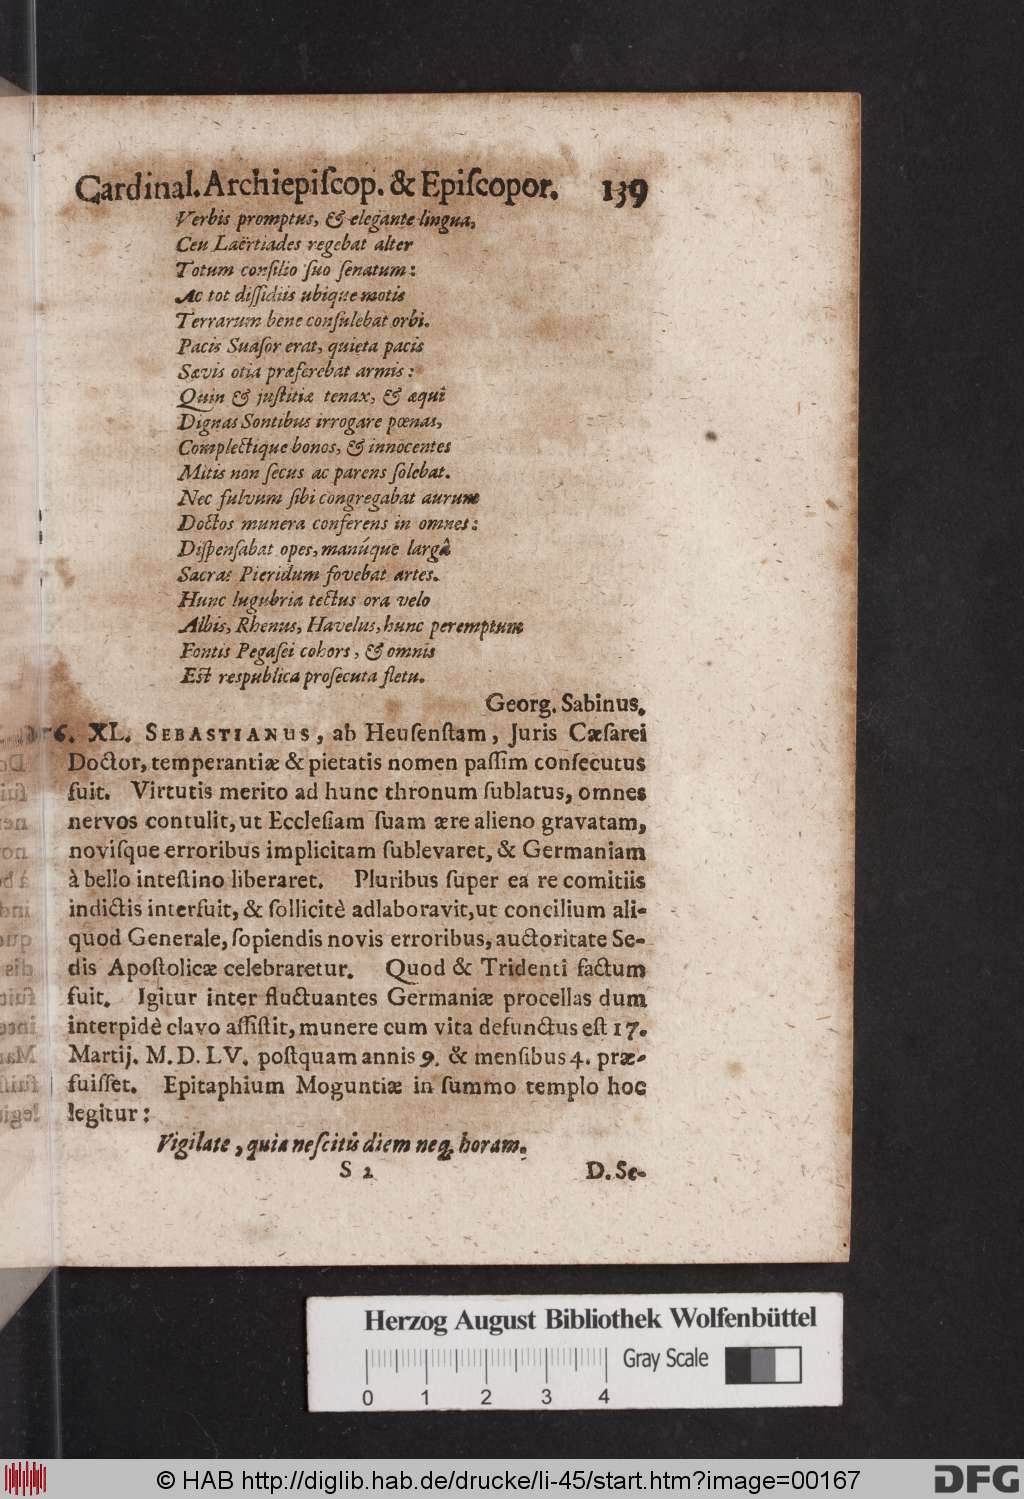 Cardinal. Archiepiſcop. & Epiſcopor. 139
Verbis promptus, & elegante lingua,
Ceu Laërtiades regebat alter
Totum conſilio ſuo ſenatum:
Ac tot diſſidiis ubique motis
Terrarum bene conſulebat orbi.
Pacis Suaſor erat, quieta pacis
Sævis otia præferebat armis:
Quin & juſtitiæ tenax, & æqui
Dignas Sontibus irrogare pœnas,
Complectique bonos, & innocentes
Mitis non ſecus ac parens ſolebat.
Nec fulvum ſibi congregabat aurum
Doctos munera conferens in omnes:
Diſpenſabat opes, manúque largâ
Sacras Pieridum fovebat artes.
Hunc lugubria tectus ora velo
Albis, Rhenus, Havelus, hunc peremptum
Fontis Pegaſei cohors, & omnis
Eſt respublica proſecuta fletu.
Georg. Sabinus.
XL. SEBASTIANUS, ab Heuſenſtam, Juris Cæſarei
Doctor, temperantiæ & pietatis nomen paſſim conſecutus
fuit. Virtutis merito ad hunc thronum ſublatus, omnes
nervos contulit, ut Eccleſiam ſuam ære alieno gravatam,
noviſque erroribus implicitam ſublevaret, & Germaniam
à bello inteſtino liberaret. Pluribus ſuper ea re comitiis
indictis interfuit, & ſollicitè adlaboravit, ut concilium ali-
quod Generale, ſopiendis novis erroribus, auctoritate Se-
dis Apoſtolicæ celebraretur. Quod & Tridenti factum
fuit. Igitur inter fluctuantes Germaniæ procellas dum
interpidè clavo aſſiſtit, munere cum vita defunctus eſt 17.
Martij. M. D. LV. poſtquam annis 9. & menſibus 4. præ-
fuiſſet. Epitaphium Moguntiæ in ſummo templo hoc
legitur:
Vigilate, quia neſcitis diem neq. horam.
S 2 D. Se-
Herzog August Bibliothek Wolfenbüttel
Gray Scale
0 1 2 3 4
© HAB http://diglib.hab.de/drucke/li-45/start.htm?image=00167
DFG